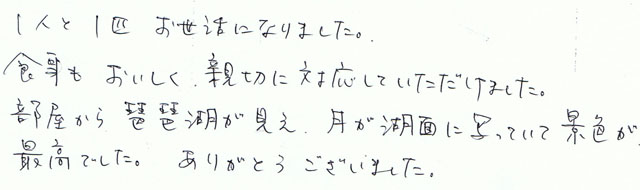 1人と1匹 お世話になりました。
食事も おいしく、親切に対応していただけました。
部屋から 琵琶湖が見え、月が湖面に写っていて 景色が
最高でした。 ありがとうございました。